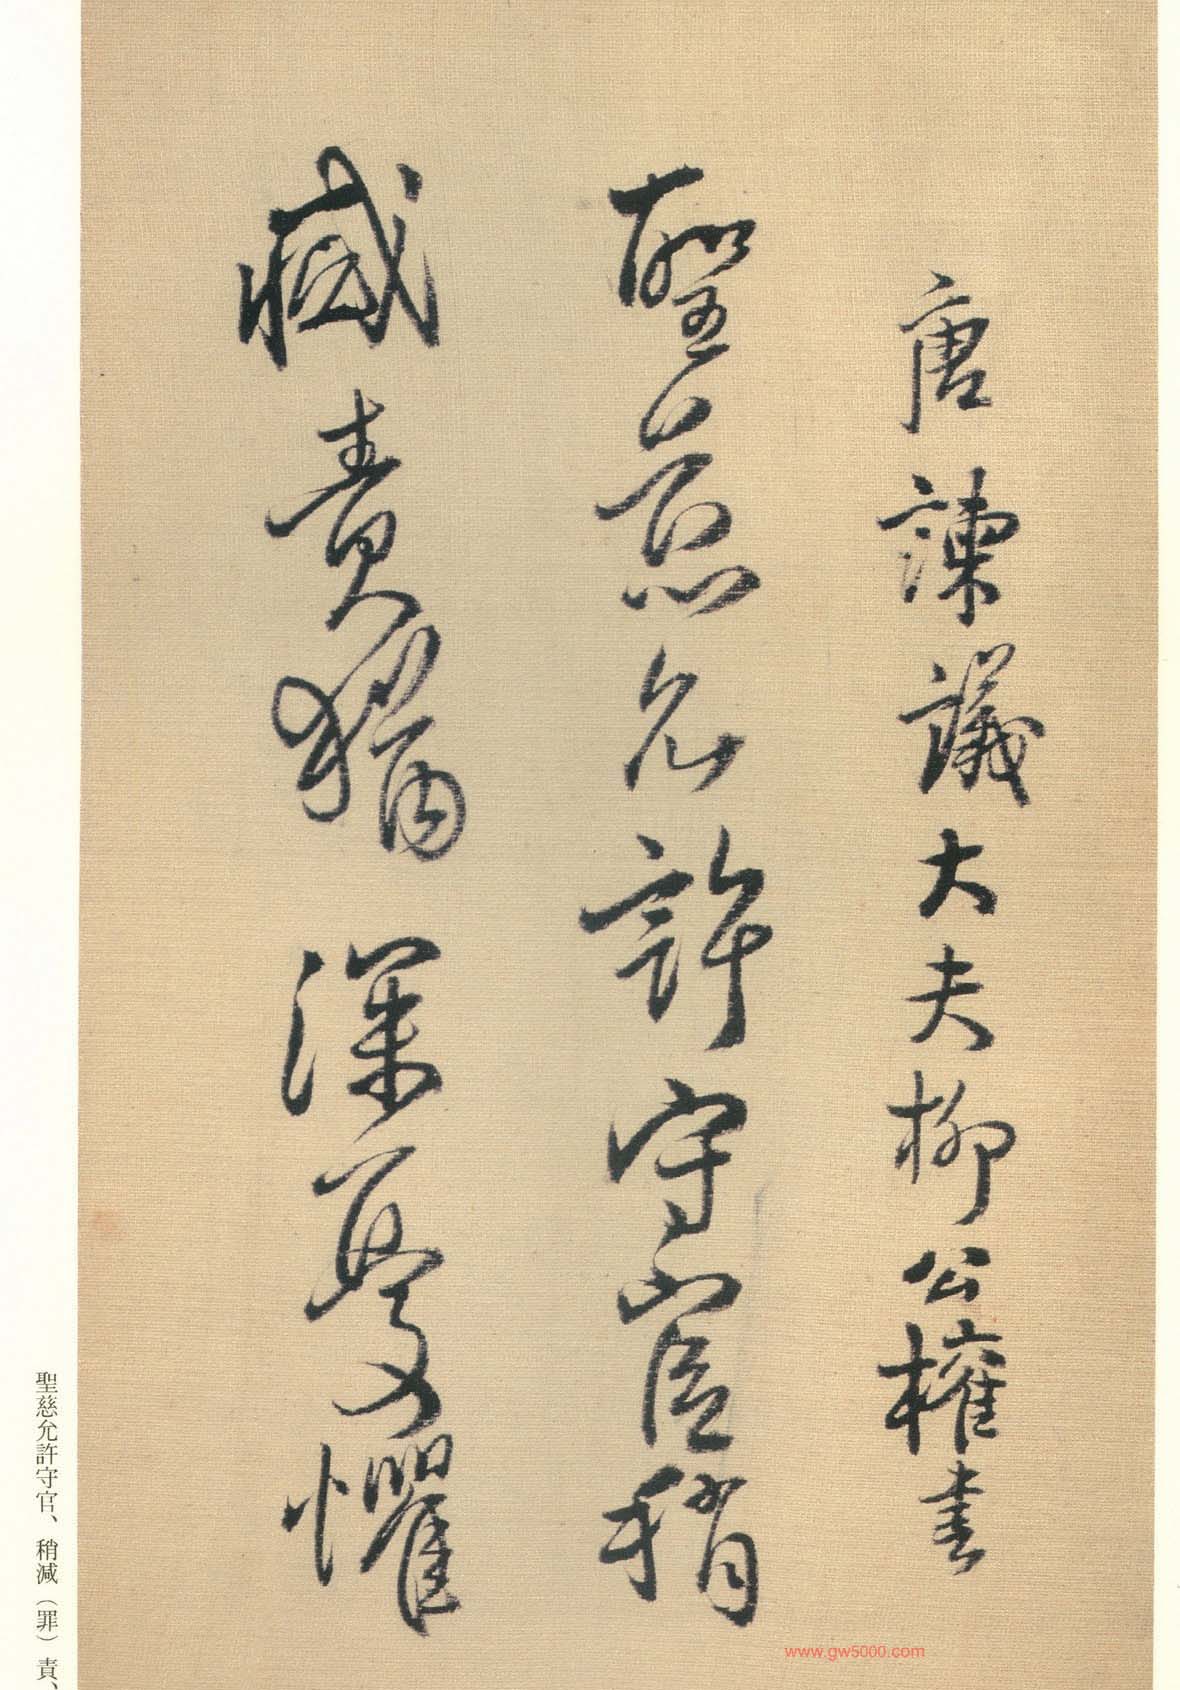 唐諫議大夫柳公權書
聖慈允許守官稍
減責猶深憂懼
聖慈允許守官、稍減（罪）責、
www.gw5000.com